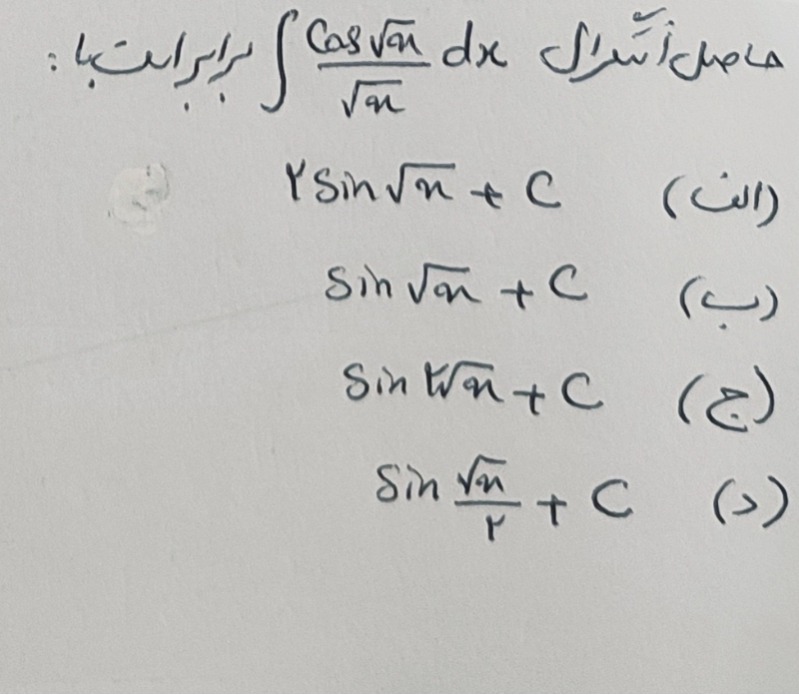 حاصل انتگرال ∫ Cos√x / √x dx برابر است با :
الف) ۲Sin√x + C
ب) Sin√x + C
ج) Sin ۲√x + C
د) Sin √x / ۲ + C